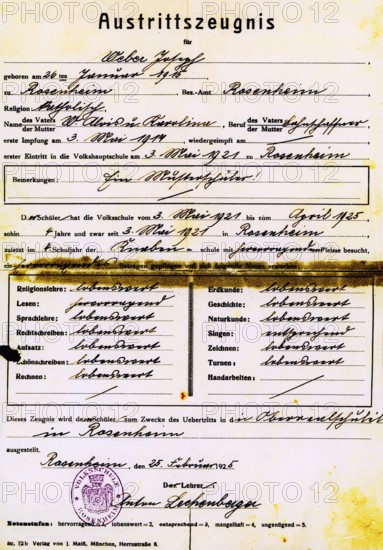 Austrittszeugnis
für
Weber Josef
geboren am 26ten Januar 1915
zu Rosenheim Bez.-Amt Rosenheim
Religion katholisch
Name des Vaters der Mutter W. Alois u. Karolina, Beruf des Vaters der Mutter
erste Impfung am 3. Mai 1917 wiedergeimpft am
erster Eintritt in die Volkshauptschule am 3. Mai 1921 zu Rosenheim
Bemerkungen: Ein Musterschüler!
Der Schüler hat die Volksschule vom 3. Mai 1921 bis zum April 1925
sohin 4 Jahre und zwar seit 3. Mai 1921 in Rosenheim
zuletzt im 4. Schuljahr der Knaben-schule mit hervorragendem Fleisse besucht,
Religionslehre: lobenswert
Lesen: hervorragend
Sprachlehre: lobenswert
Rechtschreiben: lobenswert
Aufsatz: lobenswert
Schönschreiben: lobenswert
Rechnen: lobenswert
Erdkunde: lobenswert
Geschichte: lobenswert
Naturkunde: lobenswert
Singen: entsprechend
Zeichnen: lobenswert
Turnen: lobenswert
Handarbeiten:
Dieses Zeugnis wird dem Schüler zum Zwecke des Uebertritts in die Oberrealschule
in Rosenheim
ausgestellt.
Rosenheim, den 25. Februar 1925
Der Lehrer:
Anton Lechenberger
VOLKSSCHULE ROSENHEIM
Notenstufen: hervorragend=1, lobenswert=2, entsprechend=3, mangelhaft=4, ungenügend=5.
Nr. 72b Verlag von J. Maiß, München, Herrnstraße 8.
PHOTO12